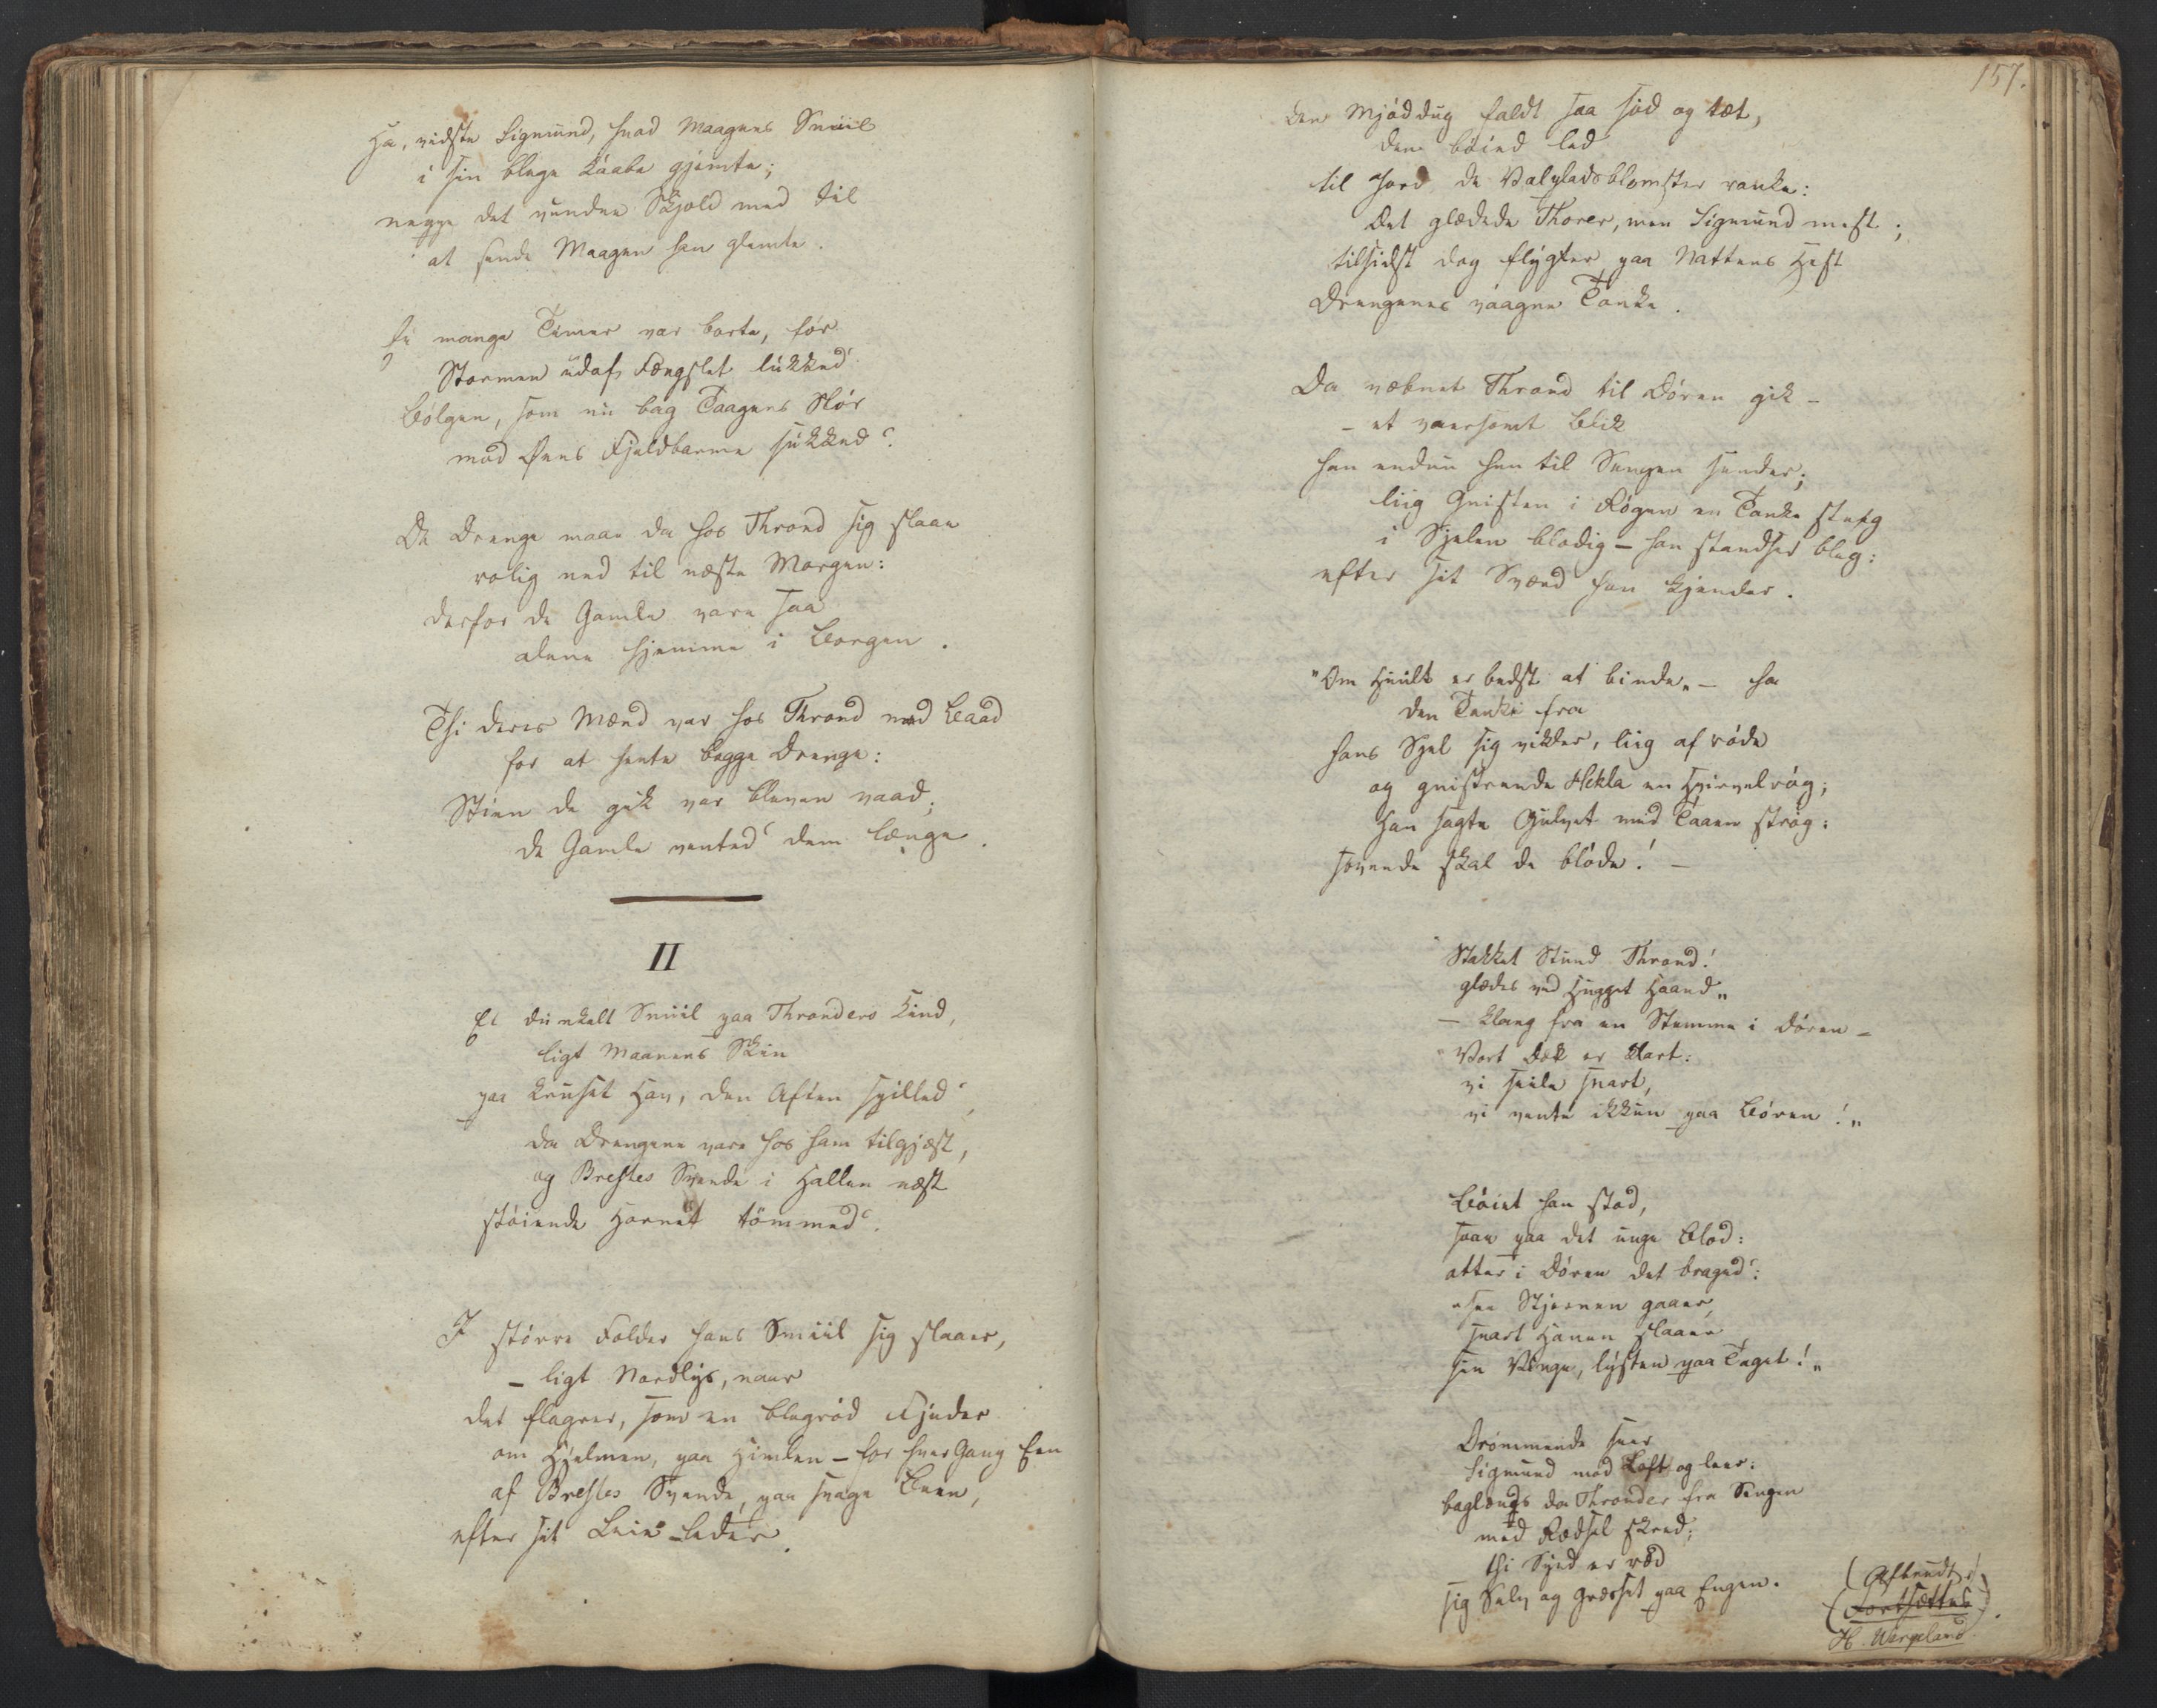 Ha, vidste Sigmund, hvad Maagens Smiil
i sin blege Kaabe gjemte;
neppe det runden Skjold med Iil
at sende Maagen han glemte.
Ei mange Timer var borte, før
Stormen udaf Fængslet lukked'
Bølgen, som nu bag Taagens Slør
mod Øens Fjeldbarme sukked'.
De Drenge maae da hos Thrond sig slaae
rolig ned til næste Morgen:
derfor de Gamle vare saa
alene hjemme i Borgen.
Thi deres Mænd var hos Thrond med Baad
for at hente begge Drenge:
Stien de gik var bleven vaad;
de Gamle vented' dem længe.
II
Et dunkelt Smiil paa Thronders Kind,
ligt Maanens Skin
paa kruset Hav, den Aften spilled',
da Drengene vare hos ham tilgjæst,
og Brestes Svende i Hallen næst
støiende Hornet tömmed'.
I större Folder hans Smiil sig slaaer,
– ligt Nordlys, naar
det flagrer, som en blegrød Fjeder
om Hjelmen, paa Himlen – for hver Gang Een
af Brestes Svende, paa svage Been,
efter sit Leie leder.
157.
Den Mjöddug faldt saa södt og tæt,
den böied led
til Jord de Valpladsblomster ranke:
Det glædede Thorer, men Sigmund mest;
tilsidst dog flygter paa Nattens Hest
Drengenes vaagne Tanke.
Da væbnet Thrond til Døren gik –
– et varsomt Blik
han endnu hen til Sengen sender;
liig Gnisten i Røgen en Tanke steeg
i Sjelen blodig – han standser bleg:
efter sit Sværd han kjender.
"Om Hvilt er bedst at binde" – ha
den Tanke fra
hans Sjel sig vikler, liig af røde
og gnistrende Hekla en Hvirvelrøg;
Han sagte Gulvet med Taaen strög:
sovende skal de bløde! –
"Stakket Stund Thrond!
glædes ved Hugget Haand"
– klang fra en Stemme i Døren –
"Vort Dæk er klart:
vi seile snart,
vi vente ikkun paa Bören!"
Böiet han stod,
saae paa det unge Blod:
atter i Døren det braged':
"see Stjernen gaaer,
snart Hanen slaaer
sin Vinge, lysten paa Taget!"
Drömmende seer
Sigmund mod Loft og leer:
baglænds da Thronder fra Sengen
med Rædsel skred;
thi Syed er rød
sig Selv og Græsset paa Engen.
(Afbrudt)
(Fortsættes).
H. Wergeland.